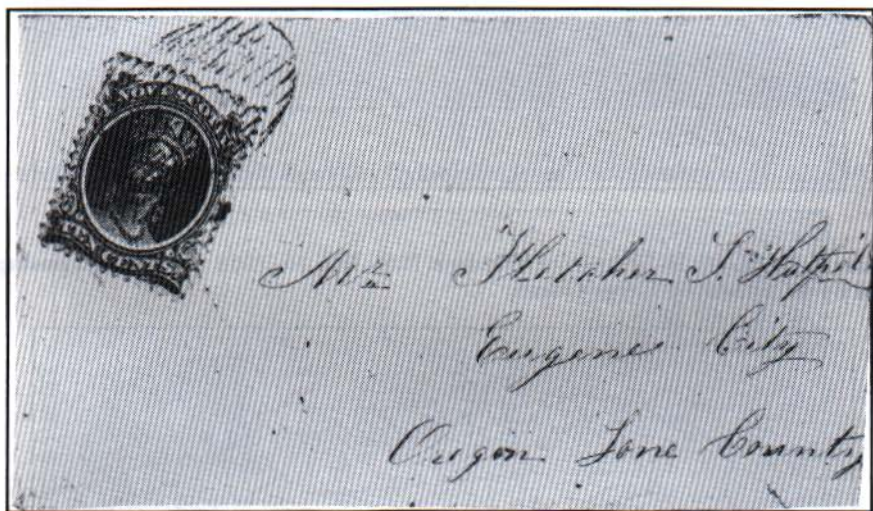 NOVA SCOTIA
TEN CENTS
Mr Fletcher S.
Eugene City
Oregon Lane County